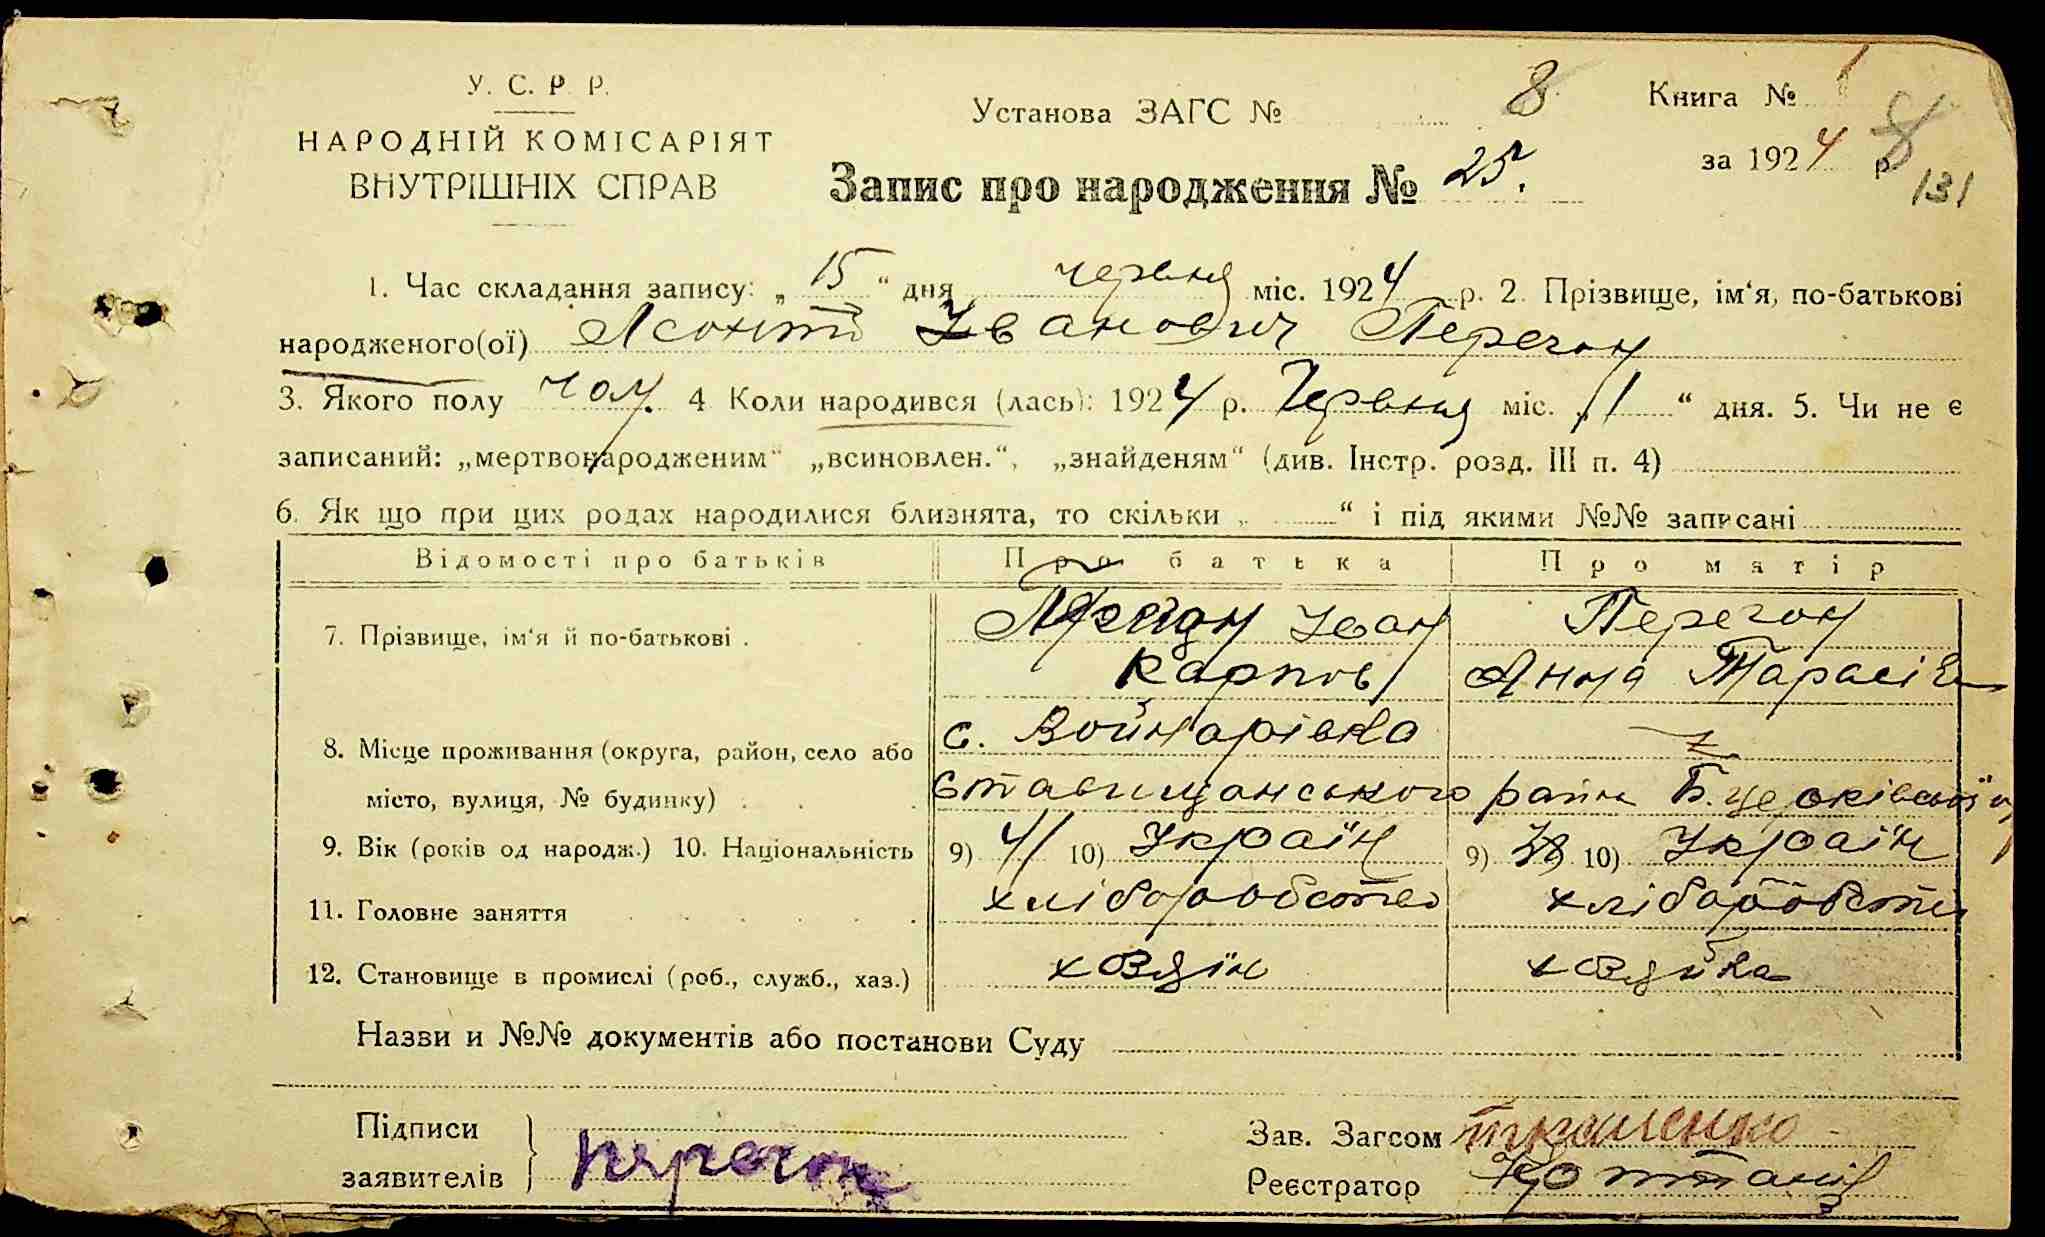 У. С. Р. Р.
НАРОДНІЙ КОМІСАРІЯТ
ВНУТРІШНІХ СПРАВ
Установа ЗАГС № 8
Книга № 1
за 1924 р. 8
131
Запис про народження № 25.
1. Час складання запису: „15“ дня червня міс. 1924 р. 2. Прізвище, ім'я, по-батькові
народженого(ої) Леонтій Іванович Перегон
3. Якого полу чол. 4 Коли народився (лась): 1924 р. Червня міс. „1“ дня. 5. Чи не є
записаний: „мертвонародженим“ „всиновлен.“, „знайденям“ (див. Інстр. розд. III п. 4)
6. Як що при цих родах народилися близнята, то скільки „ “ і під якими №№ записані
Відомості про батьків Про батька Про матір
7. Прізвище, ім'я й по-батькові . Перегон Іван Перегон
Карпов Анна Тарасів
8. Місце проживання (округа, район, село або с. Войнарівка
місто, вулиця, № будинку) Ставищанського район Б. Церківської
9. Вік (років од народж.) 10. Національність 9) 41 10) Україн 9) 10) Україн
11. Головне заняття хліборобство хліборобство
12. Становище в промислі (роб., служб., хаз.) хозяїн хозяйка
Назви и №№ документів або постанови Суду
Підписи
заявителів перегон
Зав. Загсом Ткаченко
Реєстратор